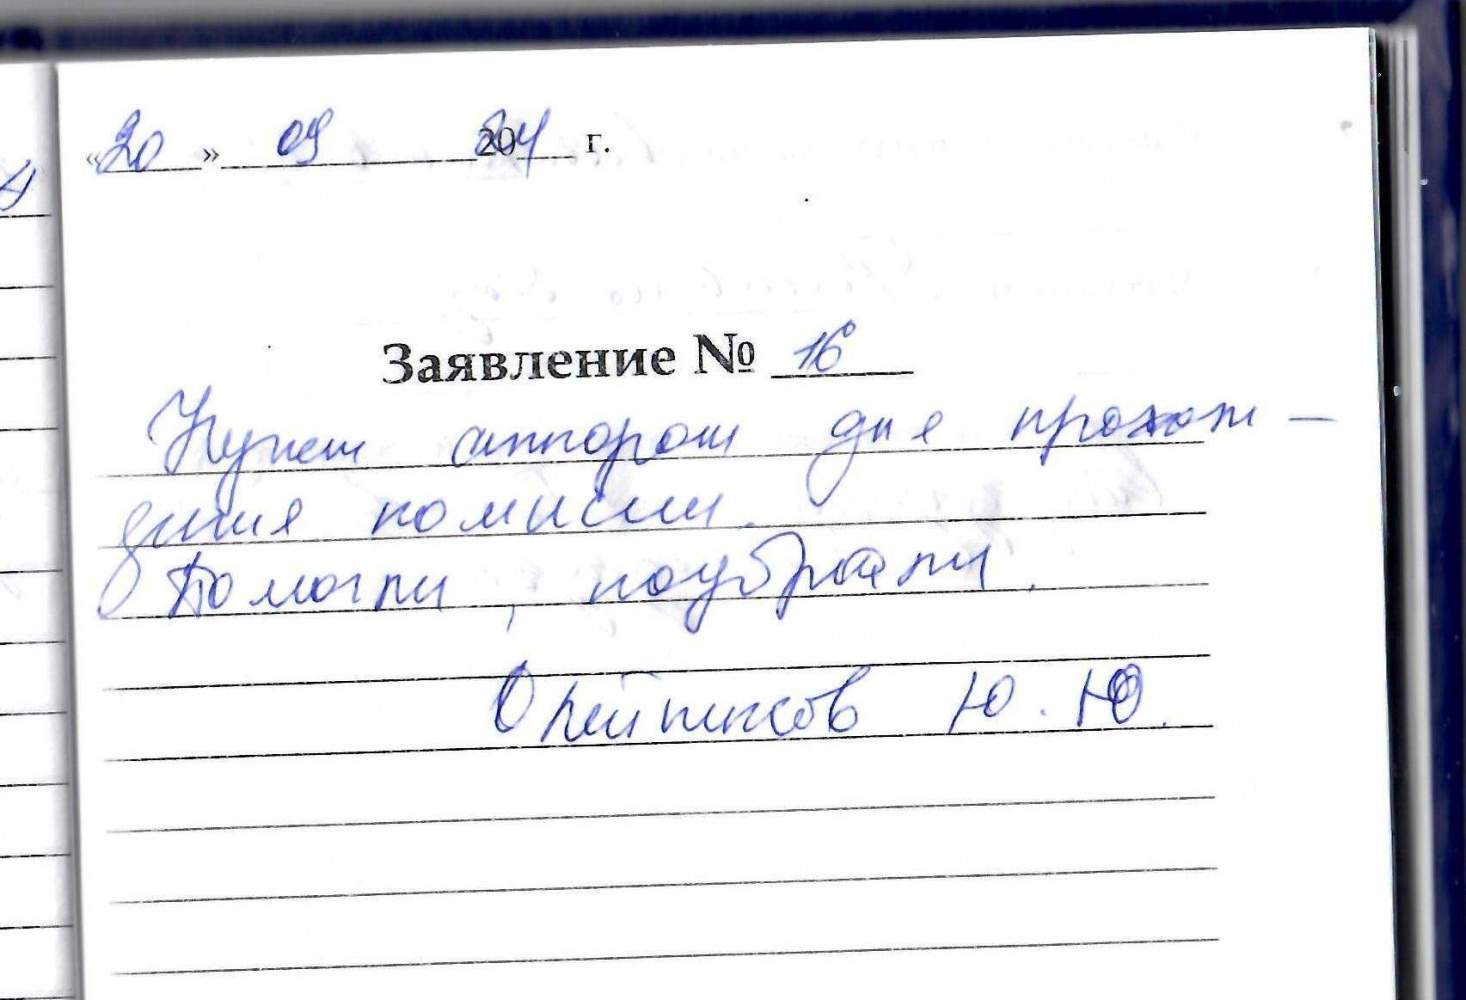 «20» 09 2024 г.
Заявление № 16
Нужен аппарат для прохож-
дения комисии.
Помогли, подобрали.
Олейников Ю. Ю.